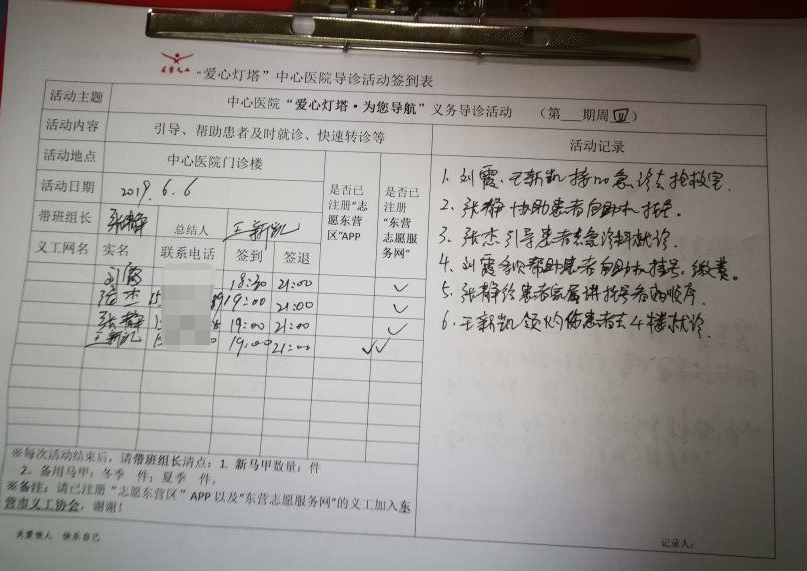 东营义工
“爱心灯塔”中心医院导诊活动签到表
活动主题 中心医院“爱心灯塔·为您导航”义务导诊活动 （第___期周四）
活动内容 引导、帮助患者及时就诊、快速转诊等
活动地点 中心医院门诊楼
活动日期 2019.6.6
带班组长 张静 总结人 王新凯
是否已注册“志愿东营区”APP
是否已注册“东营志愿服务网”
义工网名 实名 联系电话 签到 签退
刘霞 18:30 21:00 ✓
张杰 19:00 21:00 ✓
张静 19:00 21:00 ✓
王新凯 19:00 21:00 ✓✓
活动记录
1. 刘霞、王新凯接120急诊去抢救室.
2. 张静协助患者自助机挂号。
3. 张杰引导患者去急诊科就诊.
4. 刘霞帮助患者自助机挂号,缴费。
5. 张静给患者家属讲挂号看病顺序.
6. 王新凯领灼伤患者去4楼就诊.
※每次活动结束后，请带班组长清点：1. 新马甲数量： 件
2. 备用马甲：冬季 件；夏季 件。
※备注：请已注册“志愿东营区”APP以及“东营志愿服务网”的义工加入东
营市义工协会，谢谢！
关爱他人 快乐自己
记录人：